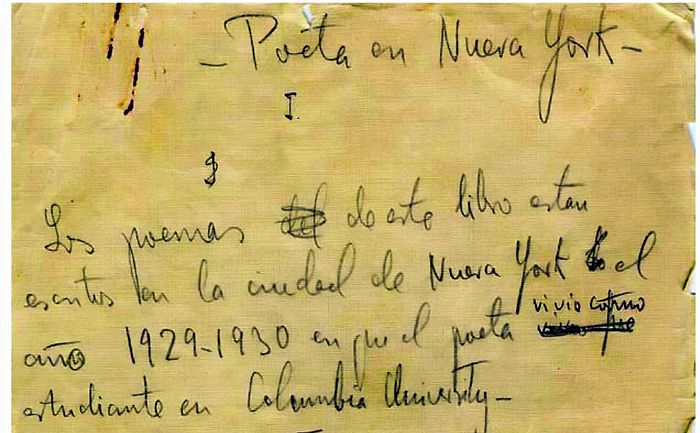 — Poeta en Nueva York —
I.
Los poemas de este libro estan
escritos en la ciudad de Nueva York el
año 1929-1930 en que el poeta vivio como
estudiante en Columbia University —